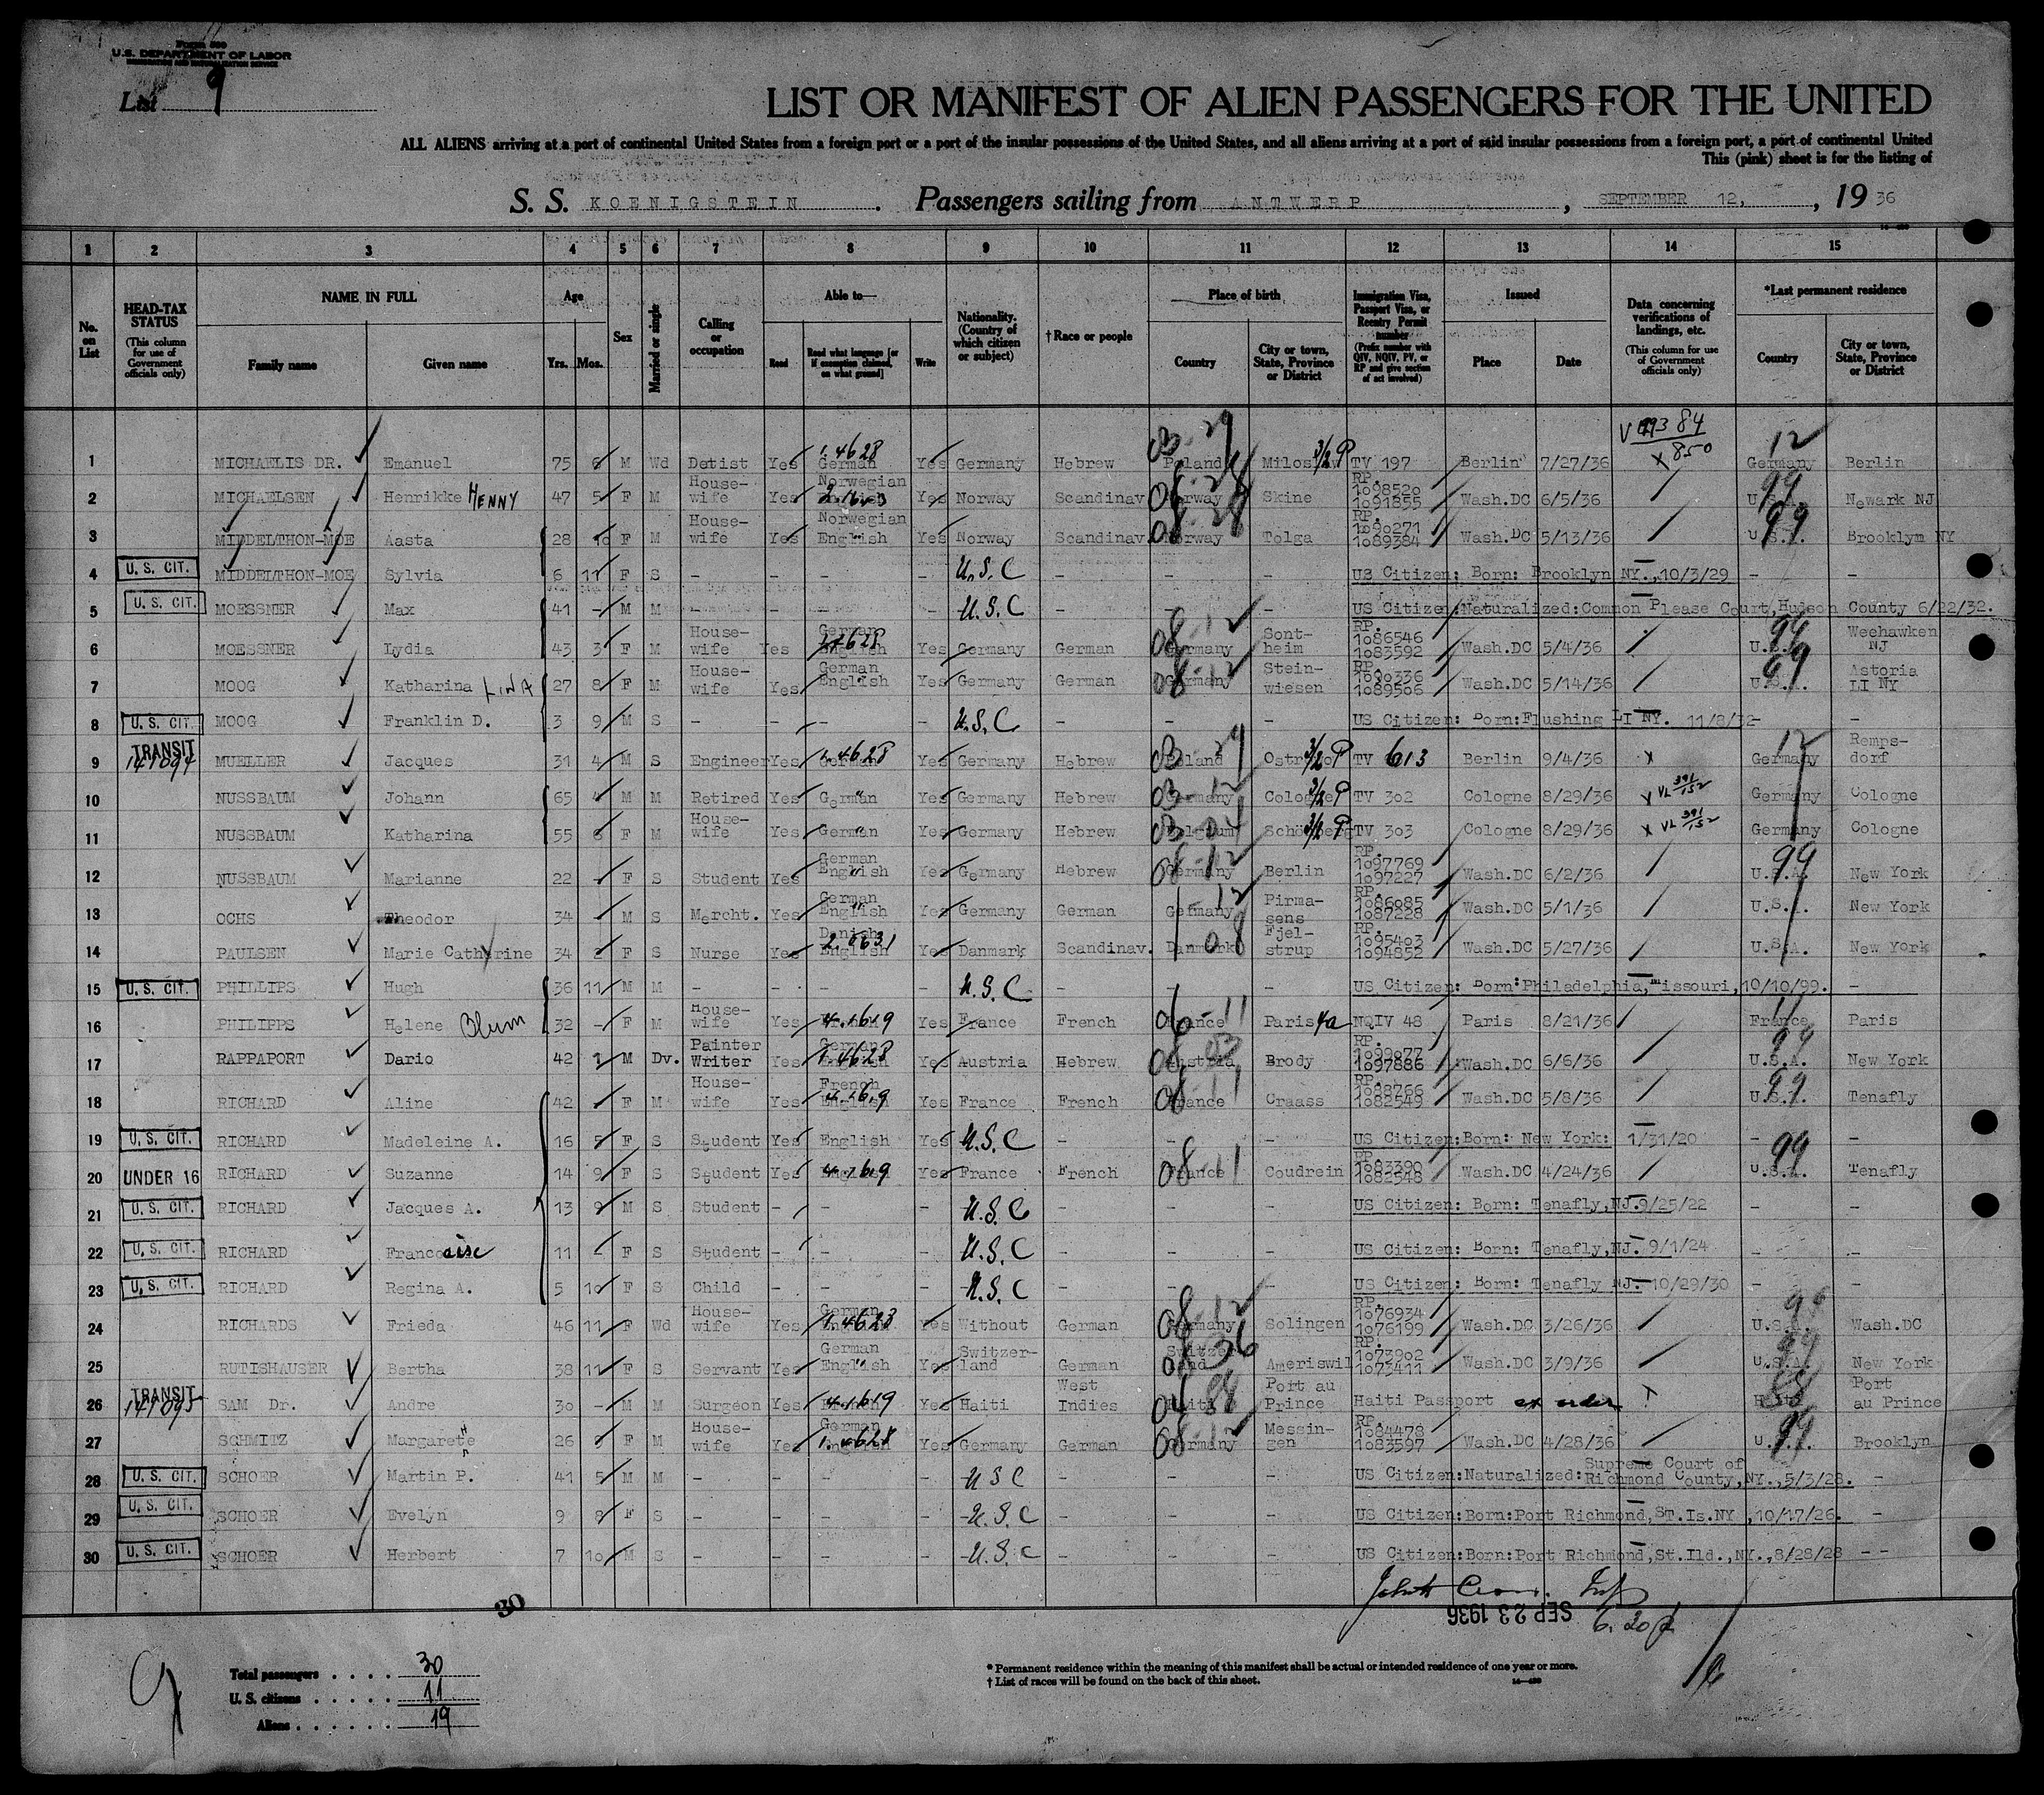 Form 500
U.S. DEPARTMENT OF LABOR
IMMIGRATION AND NATURALIZATION SERVICE
List 9
LIST OR MANIFEST OF ALIEN PASSENGERS FOR THE UNITED
ALL ALIENS arriving at a port of continental United States from a foreign port or a port of the insular possessions of the United States, and all aliens arriving at a port of said insular possessions from a foreign port, a port of continental United
This (pink) sheet is for the listing of
S. S. KOENIGSTEIN . Passengers sailing from ANTWERP , SEPTEMBER 12, , 19 36
1 2 3 4 5 6 7 8 9 10 11 12 13 14 15
No. on List
HEAD-TAX STATUS (This column for use of Government officials only)
NAME IN FULL Family name Given name
Age Yrs. Mos.
Sex
Married or single
Calling or occupation
Able to— Read Read what language [or if exemption claimed, on what ground] Write
Nationality. (Country of which citizen or subject)
† Race or people
Place of birth Country City or town, State, Province or District
Immigration Visa, Passport Visa, or Reentry Permit number (Prefix number with QIV, NQIV, PV, or RP and give section of act involved)
Issued Place Date
Data concerning verifications of landings, etc. (This column for use of Government officials only)
*Last permanent residence Country City or town, State, Province or District
1 MICHAELIS DR. Emanuel 75 6 M Wd Detist Yes German 1.4628 Yes Germany Hebrew Poland 03-29 3/2P TV 197 Berlin 7/27/36 X 850 Germany 12 Berlin
2 MICHAELSEN Henrikke HENNY 47 5 F M House-wife Yes Norwegian Yes Norway Scandinav. Norway Skine RP. 1098520 1091855 Wash.DC 6/5/36 U.S.A. 99 Newark NJ
3 MIDDELTHON-MOE Aasta 28 10 F M House-wife Yes Norwegian English Yes Norway Scandinav. Norway 08-28 Tolga RP. 1090271 1089384 Wash.DC 5/13/36 U.S.A. 99 Brooklym NY
4 U. S. CIT. MIDDELTHON-MOE Sylvia 6 11 F S - - - - U.S.C - - - US Citizen: Born: Brooklyn NY.,10/3/29 - -
5 U. S. CIT. MOESSNER Max 41 - M M - - - - U.S.C - - - US Citizen:Naturalized:Common Please Court,Hudson County 6/22/32.
6 MOESSNER Lydia 43 3 F M House-wife Yes German English Yes Germany German Germany 08-12 Sont-heim RP. 1086546 1083592 Wash.DC 5/4/36 U.S.A. 99 Weehawken NJ
7 MOOG Katharina LINA 27 8 F M House-wife Yes German English Yes Germany German Germany 08-12 Stein-wiesen RP. 1090336 1089506 Wash.DC 5/14/36 U.S.A. 99 Astoria LI NY
8 U. S. CIT. MOOG Franklin D. 3 9 M S - - - - U.S.C - - - US Citizen: Born:Flushing LI NY. 11/8/32 - -
9 TRANSIT 141094 MUELLER Jacques 31 4 M S Engineer Yes German 1.4628 Yes Germany Hebrew Poland 03-29 3/2P TV 613 Berlin 9/4/36 X Germany 12 Remps-dorf
10 NUSSBAUM Johann 65 4 M M Retired Yes German Yes Germany Hebrew Germany 03-12 Cologne 3/2P TV 302 Cologne 8/29/36 X VL 391/152 Germany Cologne
11 NUSSBAUM Katharina 55 6 F M House-wife Yes German Yes Germany Hebrew Belgium 03-04 3/2P TV 303 Cologne 8/29/36 X VL 391/152 Germany Cologne
12 NUSSBAUM Marianne 22 - F S Student Yes German English Yes Germany Hebrew Germany 08-12 Berlin RP. 1097769 1097227 Wash.DC 6/2/36 U.S.A. 99 New York
13 OCHS Theodor 34 - M S Mercht. Yes German English Yes Germany German Germany 12 Pirma-sens RP. 1086085 1087228 Wash.DC 5/1/36 U.S.A. New York
14 PAULSEN Marie Catherine 34 2 F S Nurse Yes Danish English Yes Danmark Scandinav. Danmark 08 Fjel-strup RP. 1095403 1094852 Wash.DC 5/27/36 U.S.A. New York
15 U. S. CIT. PHILLIPS Hugh 36 11 M M - - - - U.S.C - - - US Citizen: Born:Philadelphia,Missouri,10/10/99. -
16 PHILIPPS Helene Blum 32 - F M House-wife Yes French 4.1619 Yes France French France 06-11 Paris 4a NQIV 48 Paris 8/21/36 France 11 Paris
17 RAPPAPORT Dario 42 1 M Dv. Painter Writer Yes German English 1.4628 Yes Austria Hebrew Austria 08 03 Brody RP. 1099077 1097886 Wash.DC 6/6/36 U.S.A. 99 New York
18 RICHARD Aline 42 F M House-wife Yes French English 4.1619 Yes France French France 08-11 Craass RP. 1088766 1082549 Wash.DC 5/8/36 U.S.A. 99 Tenafly
19 U. S. CIT. RICHARD Madeleine A. 16 5 F S Student Yes English Yes U.S.C - - - US Citizen:Born: New York: 1/31/20 - -
20 UNDER 16 RICHARD Suzanne 14 9 F S Student Yes English 4.1619 Yes France French France 08-11 Coudrein RP. 1083390 1082548 Wash.DC 4/24/36 U.S.A. 99 Tenafly
21 U. S. CIT. RICHARD Jacques A. 13 9 M S Student - - - U.S.C - - - US Citizen: Born: Tenafly,NJ.9/25/22 - -
22 U. S. CIT. RICHARD Francoise 11 - F S Student - - - U.S.C - - - US Citizen: Born: Tenafly,NJ. 9/1/24 - -
23 U. S. CIT. RICHARD Regina A. 5 10 F S Child - - - U.S.C - - - US Citizen: Born: Tenafly NJ. 10/29/30 - -
24 RICHARDS Frieda 46 11 F Wd House-wife Yes German English Yes Without German Germany 08-12 Solingen RP. 1076934 1076199 Wash.DC 3/26/36 U.S.A. 99 Wash.DC
25 RUTISHAUSER Bertha 38 11 F S Servant Yes German English Yes Switzer-land German Switzer-land 08 36 Ameriswil RP. 1073902 1073411 Wash.DC 3/9/36 U.S.A. 99 New York
26 TRANSIT 141095 SAM Dr. Andre 30 - M M Surgeon Yes French 4.1619 Yes Haiti West Indies Haiti 04 88 Port au Prince Haiti Passport ex order Haiti 88 Port au Prince
27 SCHMITZ Margarethe 26 9 F M House-wife Yes German English 1.4628 Yes Germany German Germany 08-12 Messin-gen RP. 1084478 1083597 Wash.DC 4/28/36 U.S.A. 99 Brooklyn
28 U. S. CIT. SCHOER Martin P. 41 5 M M - - - - U S C - - - US Citizen:Naturalized:Supreme Court of Richmond County,NY.,5/3/28. -
29 U. S. CIT. SCHOER Evelyn 9 8 F S - - - - U.S.C - - - US Citizen:Born:Port Richmond,ST.Is.NY ,10/17/26. -
30 U. S. CIT. SCHOER Herbert 7 10 M S - - - - U.S.C - - - US Citizen:Born:Port Richmond,St.Ild.,NY.,8/28/28 - -
30
SEP 23 1936
6.20 p
9
Total passengers . . . . 30
U. S. citizens . . . . . 11
Aliens . . . . . . 19
* Permanent residence within the meaning of this manifest shall be actual or intended residence of one year or more.
† List of races will be found on the back of this sheet.